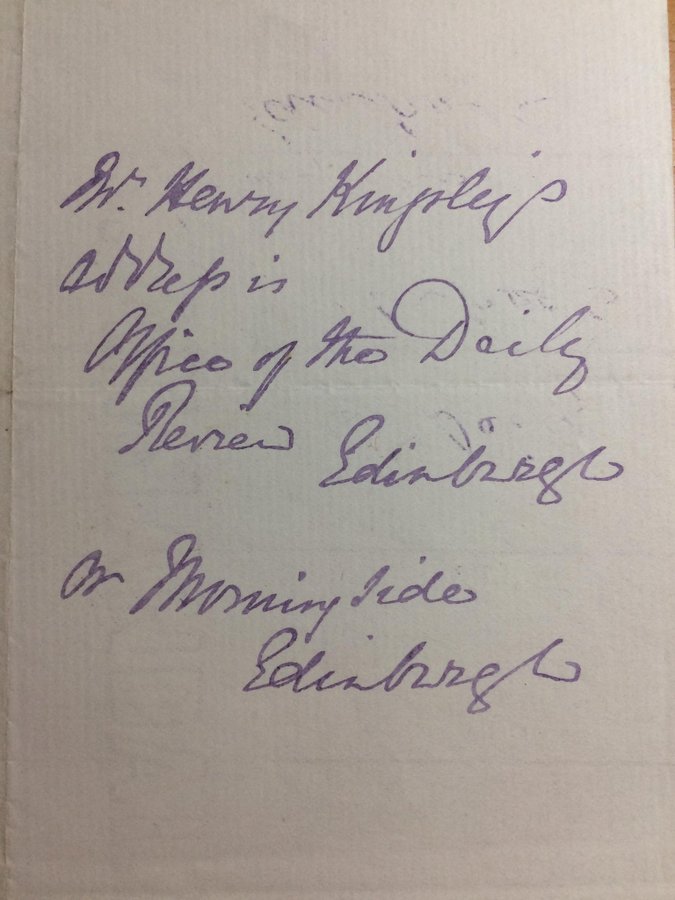 Mr. Henry Kingsley's
address is
Office of the Daily
Review Edinburgh
or Morningside
Edinburgh